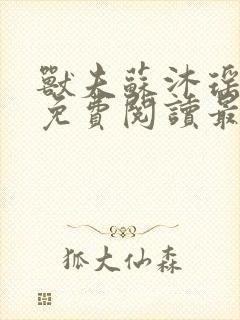 獸夫蘇沐瑤
免費閱讀最
狐大仙森